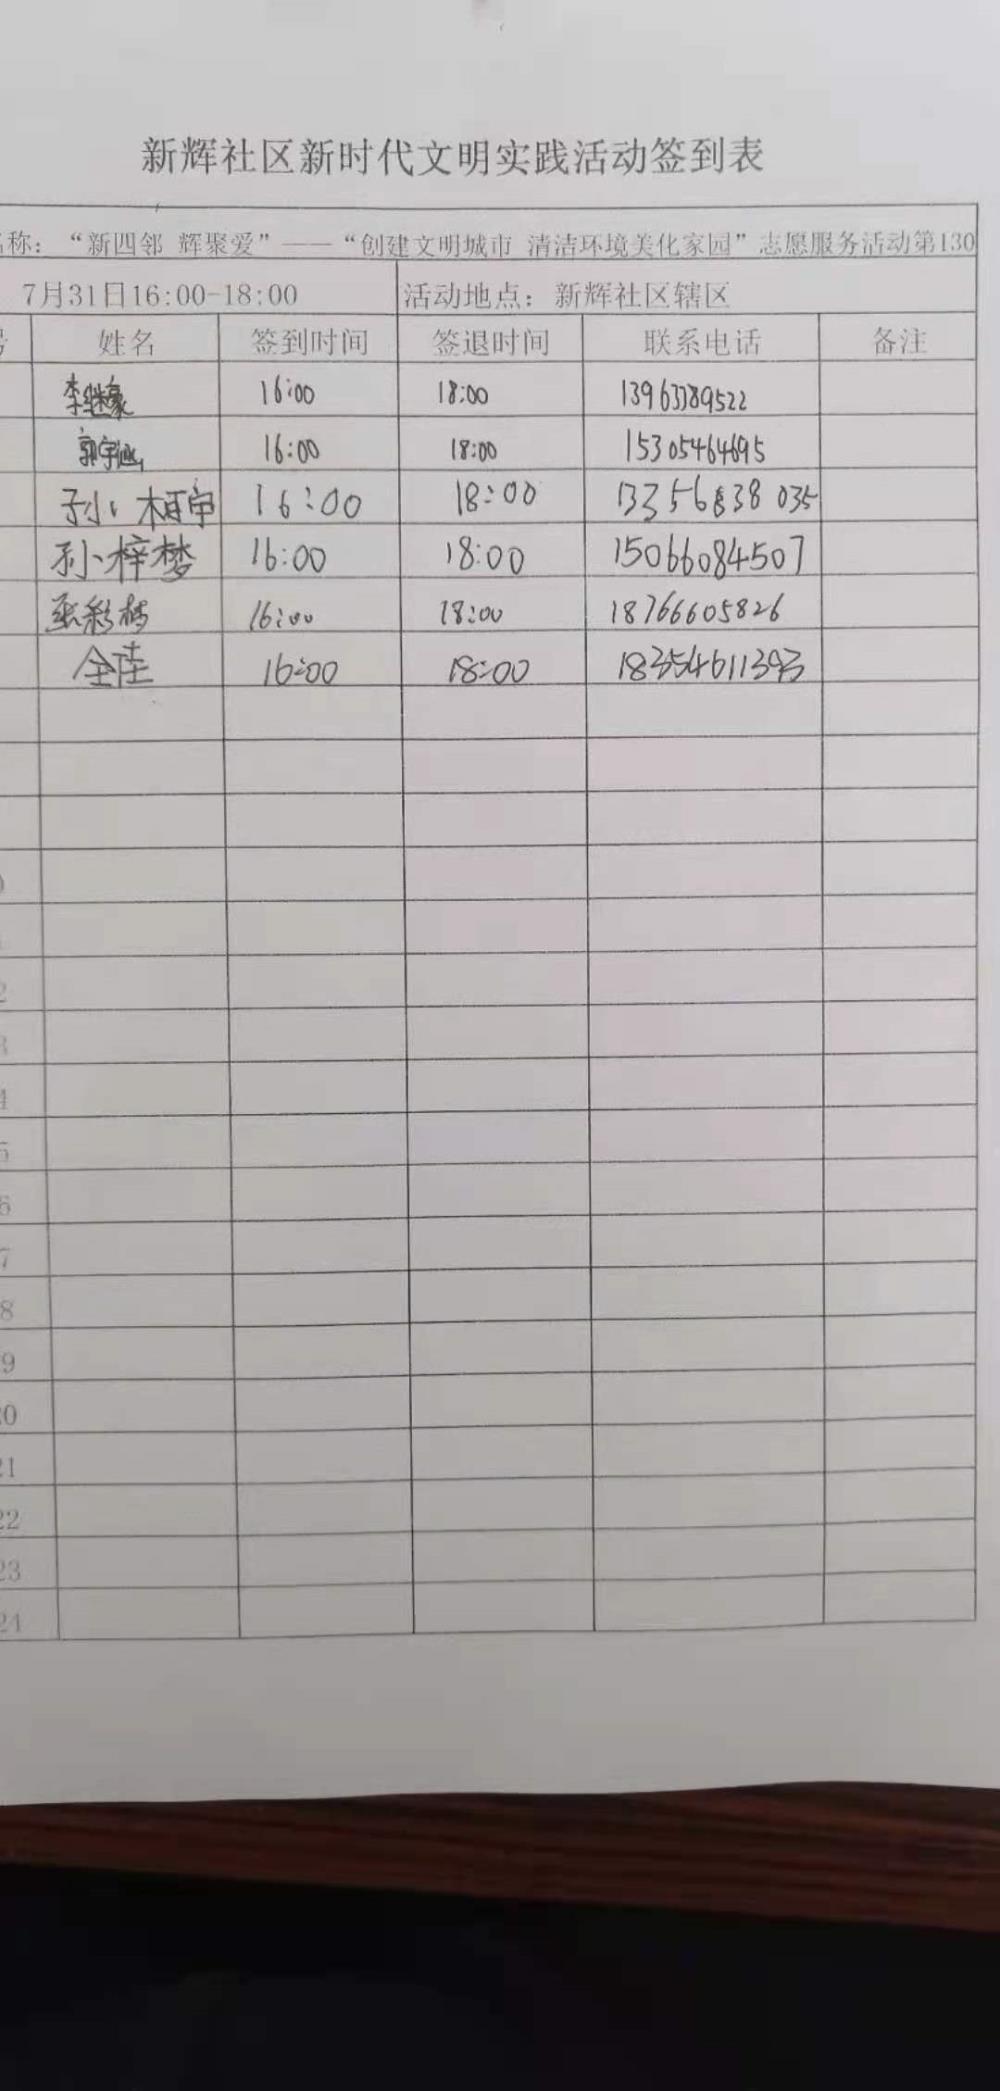 新辉社区新时代文明实践活动签到表
称：“新四邻 辉聚爱”——“创建文明城市 清洁环境美化家园”志愿服务活动第130
7月31日16:00-18:00 活动地点：新辉社区辖区
姓名 签到时间 签退时间 联系电话 备注
李继豪 16:00 18:00 13963389522
郭宇涵 16:00 18:00 15305464695
16:00 18:00 13356638035
孙梓梦 16:00 18:00 15066084507
16:00 18:00 18766605826
全陆 16:00 18:00
19
20
21
22
23
24